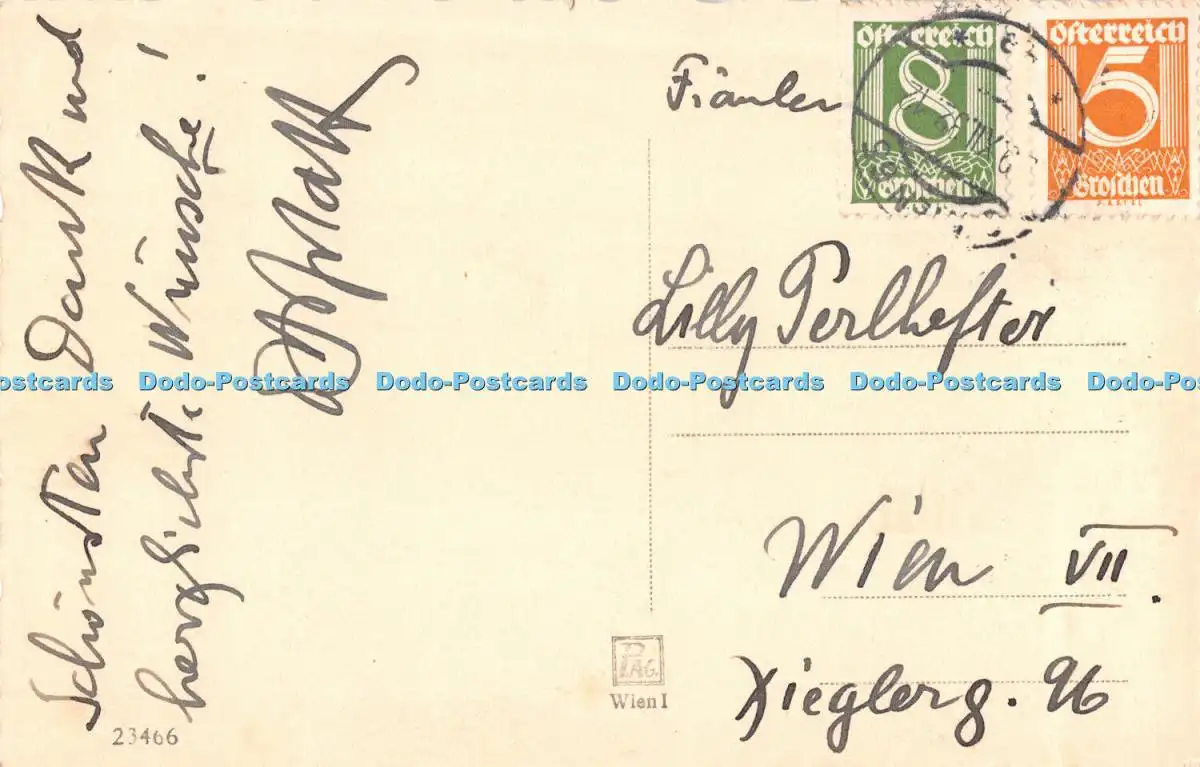 Schönsten Dank und
herzlichste Wünsche!
Fräulein
Lilly Perlhefter
Wien VII.
Zieglerg. 96
Österreich
8
Groschen
Österreich
5
Groschen
PAG.
Wien I
23466
Dodo-Postcards Dodo-Postcards Dodo-Postcards Dodo-Postcards Dodo-Postcards